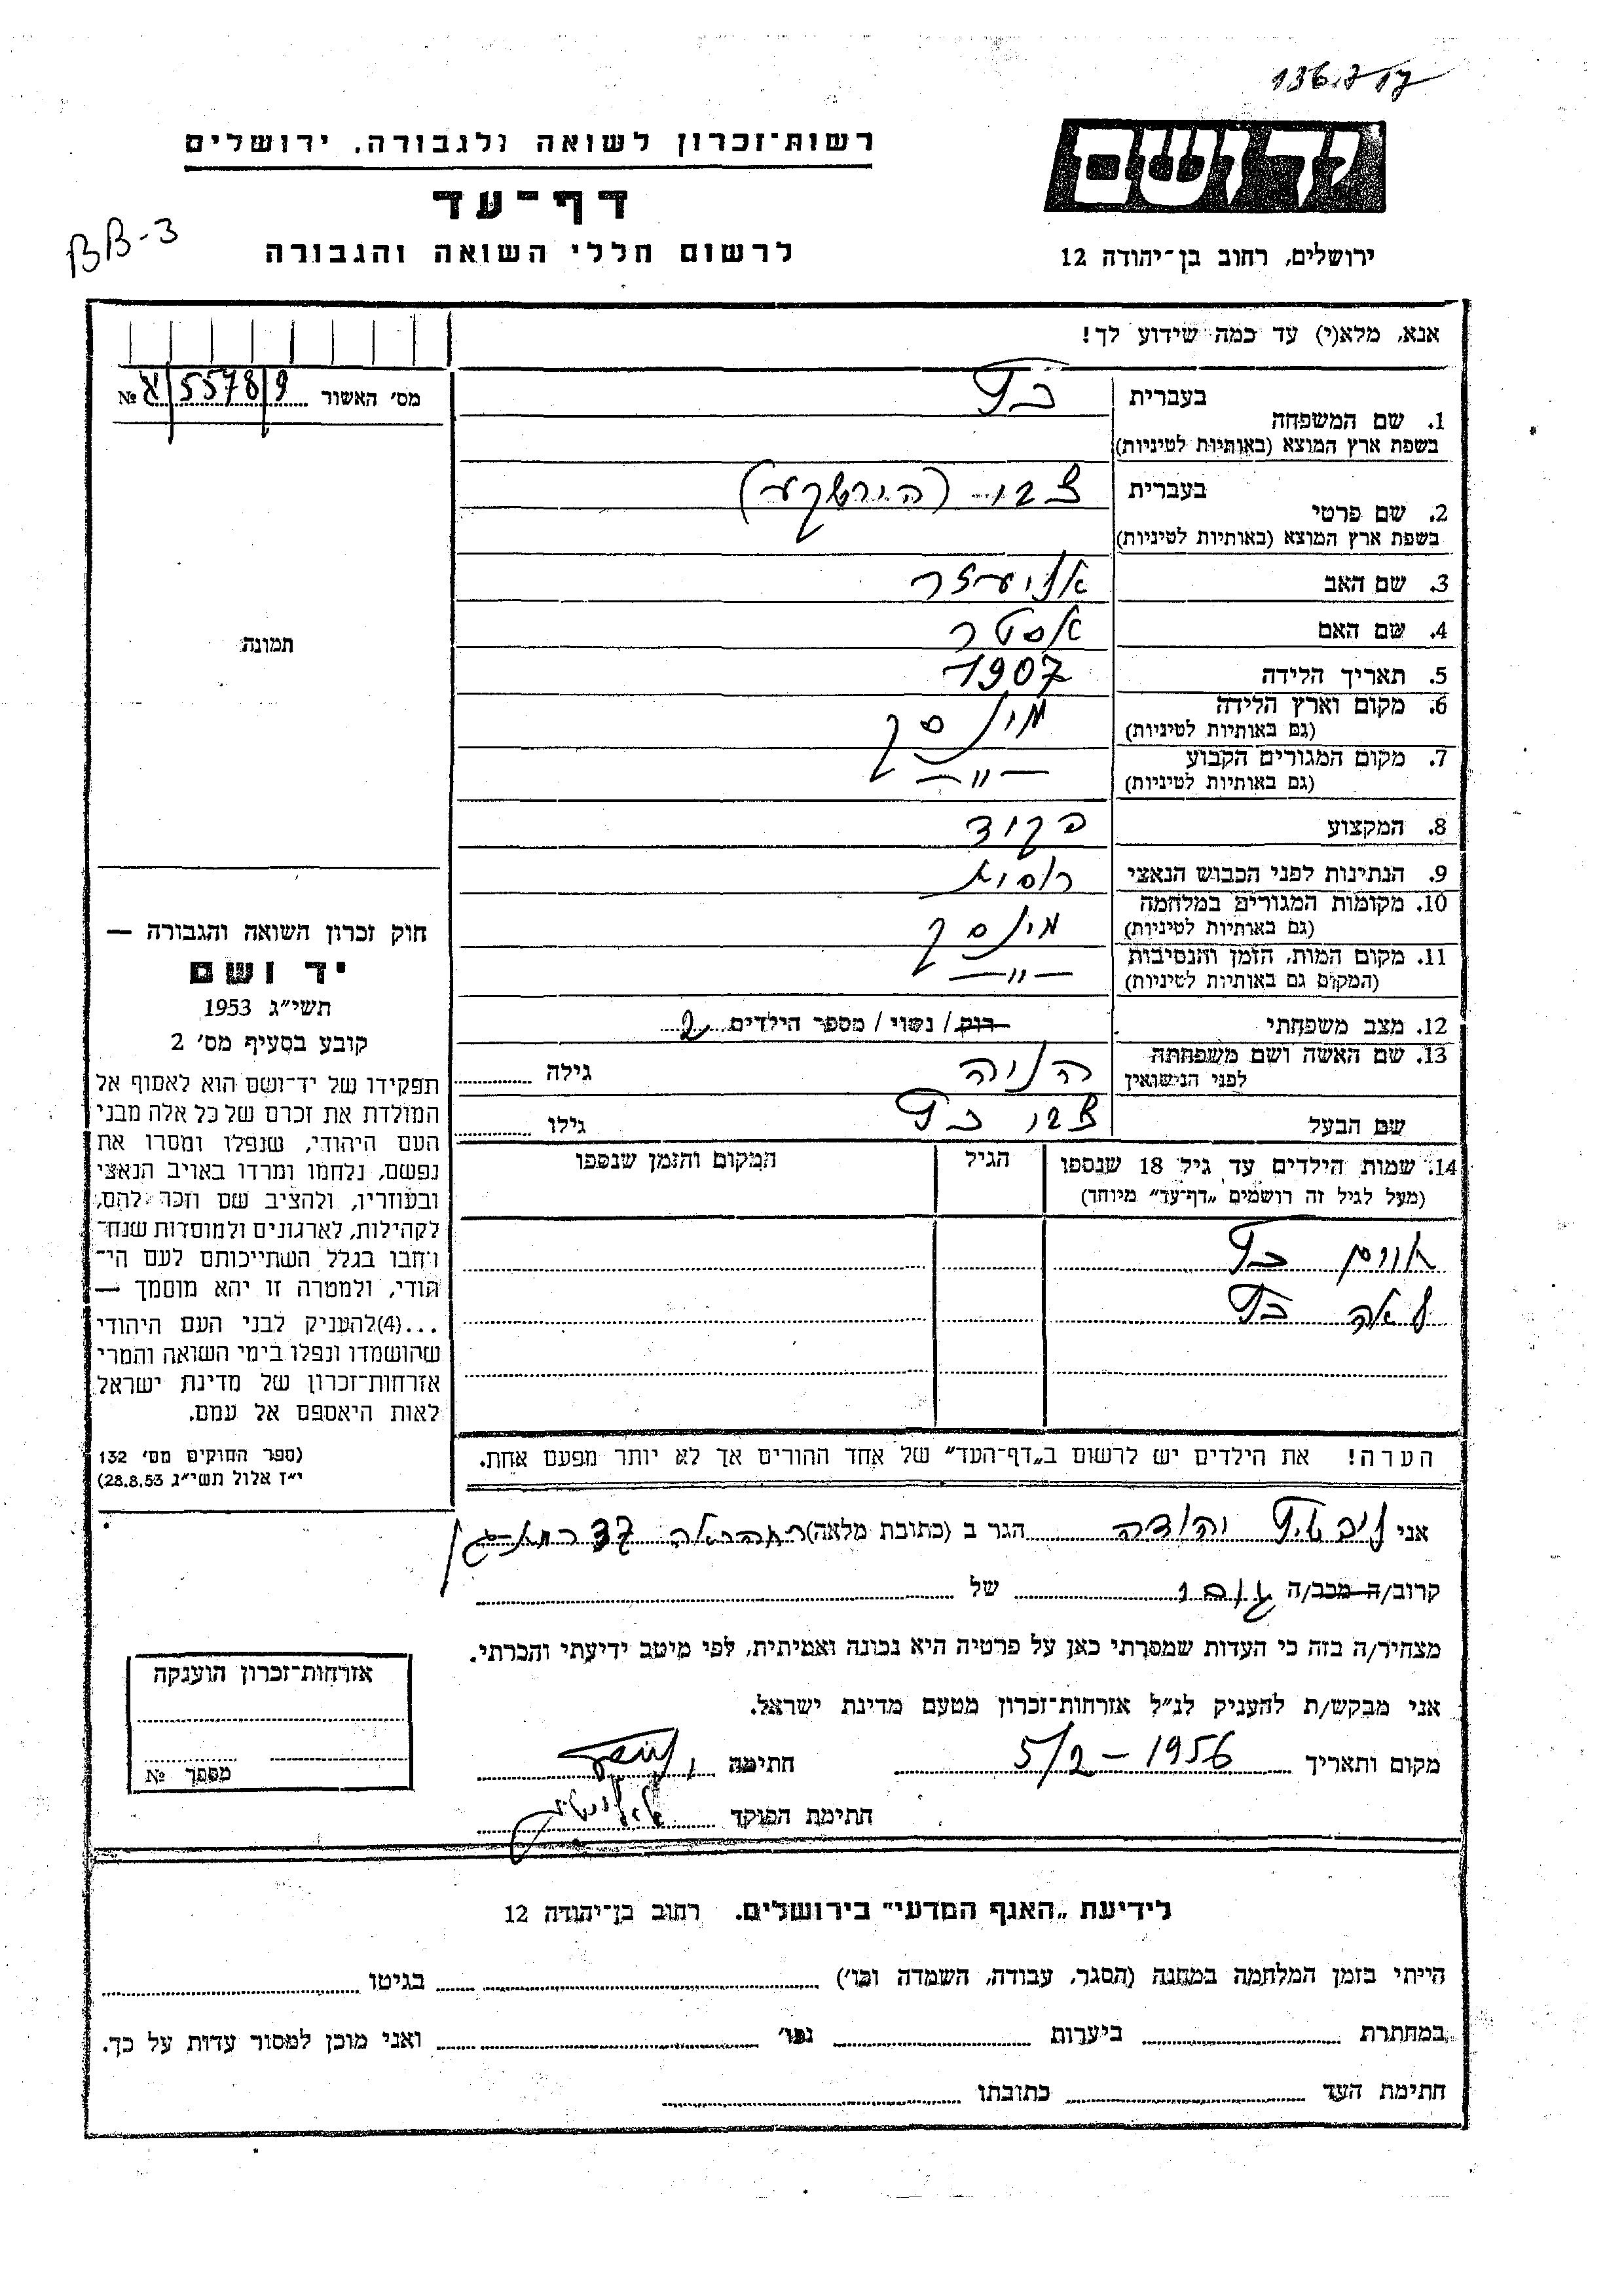 136.717
רשות־זכרון לשואה ולגבורה, ירושלים
יד ושם
דף־עד
לרשום חללי השואה והגבורה
BB-3
ירושלים, רחוב בן־יהודה 12
אנא, מלא(י) עד כמה שידוע לך!
מס׳ האשור № 5578/9
1. שם המשפחה בעברית כץ
בשפת ארץ המוצא (באותיות לטיניות)
2. שם פרטי בעברית צבי (הירשקע)
בשפת ארץ המוצא (באותיות לטיניות)
3. שם האב אליעזר
4. שם האם אסטר
תמונה
5. תאריך הלידה 1907
6. מקום וארץ הלידה מינסק
(גם באותיות לטיניות)
7. מקום המגורים הקבוע — 〃 —
(גם באותיות לטיניות)
8. המקצוע פקיד
9. הנתינות לפני הכבוש הנאצי רוסיא
10. מקומות המגורים במלחמה מינסק
(גם באותיות לטיניות)
11. מקום המות, הזמן והנסיבות — 〃 —
(המקום גם באותיות לטיניות)
12. מצב משפחתי רוק / נשוי / מספר הילדים 2
13. שם האשה ושם משפחתה לפני הנישואין גילה
שם הבעל צבי כץ גילו
14. שמות הילדים עד גיל 18 שנספו הגיל המקום והזמן שנספו
(מעל לגיל זה רושמים „דף־עד” מיוחד)
כץ
לאה כץ
הערה! את הילדים יש לרשום ב„דף־העד” של אחד ההורים אך לא יותר מפעם אחת.
חוק זכרון השואה והגבורה —
יד ושם
תשי״ג 1953
קובע בסעיף מס׳ 2
תפקידו של יד־ושם הוא לאסוף אל
המולדת את זכרם של כל אלה מבני
העם היהודי, שנפלו ומסרו את
נפשם, נלחמו ומרדו באויב הנאצי
ובעוזריו, ולהציב שם וזכר להם,
לקהילות, לארגונים ולמוסדות שנח־
רבו בגלל השתייכותם לעם הי־
הודי, ולמטרה זו יהא מוסמך —
...(4)להעניק לבני העם היהודי
שהושמדו ונפלו בימי השואה והמרי
אזרחות־זכרון של מדינת ישראל
לאות היאספם אל עמם.
(ספר החוקים מס׳ 132
י״ז אלול תשי״ג 28.8.53)
אני ליבשיץ יהודה הגר ב (כתובת מלאה) הרא״ה 37 רמת־גן
קרוב/ה מכר/ה של
מצהיר/ה בזה כי העדות שמסרתי כאן על פרטיה היא נכונה ואמיתית, לפי מיטב ידיעתי והכרתי.
אני מבקש/ת להעניק לנ״ל אזרחות־זכרון מטעם מדינת ישראל.
מקום ותאריך 5/2 - 1956 חתימה
חתימת הפוקד
אזרחות־זכרון הוענקה
מספר №
לידיעת „האגף המדעי” בירושלים. רחוב בן־יהודה 12
הייתי בזמן המלחמה במחנה (הסגר, עבודה, השמדה וכו׳) בגיטו
במחתרת ביערות וכו׳ ואני מוכן למסור עדות על כך.
חתימת העד כתובתו